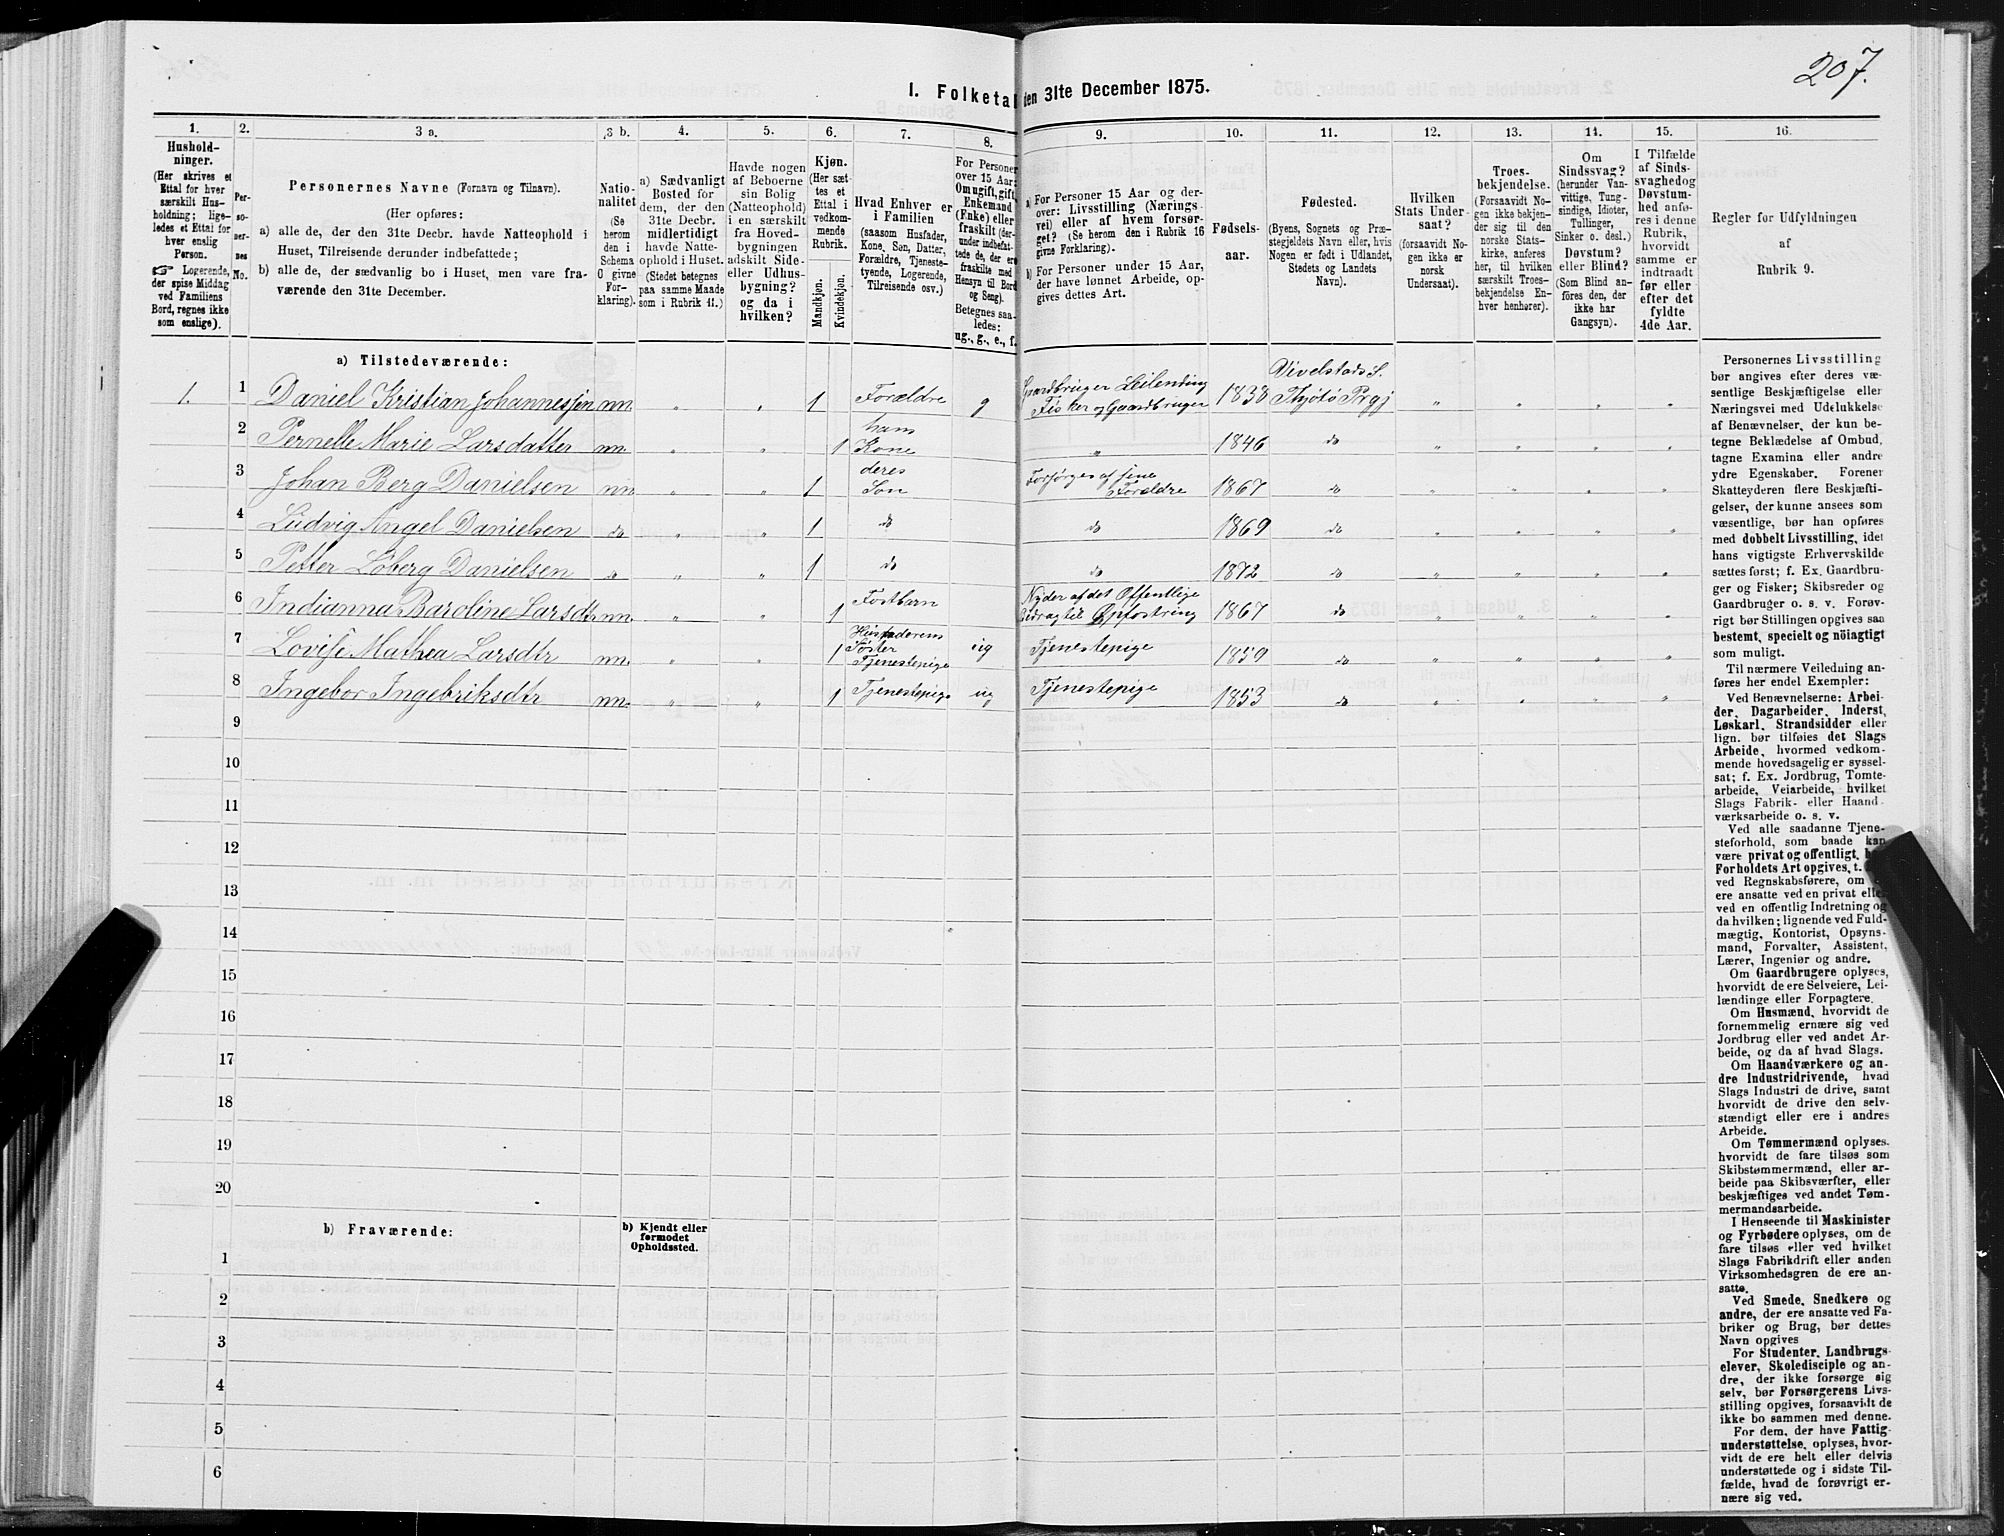 207.
I. Folketal den 31te December 1875.
1. 2. 3 a. 3 b. 4. 5. 6. 7. 8. 9. 10. 11. 12. 13. 14. 15. 16.
Hushold-
ninger.
(Her skrives et
Ettal for hver
særskilt Hus-
holdning; lige-
ledes et Ettal for
hver enslig
Person.
☞ Logerende,
der spise Middag
ved Familiens
Bord, regnes ikke
som enslige).
Per-
so-
ner-
nes
No.
Personernes Navne (Fornavn og Tilnavn).
(Her opføres:
a) alle de, der den 31te Decbr. havde Natteophold i
Huset, Tilreisende derunder indbefattede;
b) alle de, der sædvanlig bo i Huset, men vare fra-
værende den 31te December.
Natio-
nalitet
(Se
herom
den i
Schema
C givne
For-
klaring).
a) Sædvanligt
Bosted for
dem, der den
31te Decbr.
midlertidigt
havde Natte-
ophold i Huset.
(Stedet betegnes
paa samme Maade
som i Rubrik 11.)
Havde nogen
af Beboerne
sin Bolig
(Natteophold)
i en særskilt
fra Hoved-
bygningen
adskilt Side-
eller Udhus-
bygning?
og da i
hvilken?
Kjøn.
(Her sæt-
tes et
Ettal i
vedkom-
mende
Rubrik.
Mandkjøn.
Kvindekjøn.
Hvad Enhver er
i Familien
(saasom Husfader,
Kone, Søn, Datter,
Forældre, Tjeneste-
tyende, Logerende,
Tilreisende osv.)
For Personer
over 15 Aar:
Om ugift, gift,
Enkemand
(Enke) eller
fraskilt (der-
under indbefat-
tede de, der ere
fraskilte med
Hensyn til Bord
og Seng).
Betegnes saa-
ledes:
ug., g., e., f.
a) For Personer 15 Aar og der-
over: Livsstilling (Nærings-
vei) eller af hvem forsør-
get? (Se herom den i Rubrik 16
givne Forklaring).
b) For Personer under 15 Aar,
der have lønnet Arbeide, op-
gives dettes Art.
Fødsels-
aar.
Fødested.
(Byens, Sognets og Præ-
stegjeldets Navn eller, hvis
Nogen er født i Udlandet,
Stedets og Landets
Navn).
Hvilken
Stats Under-
saat?
(forsaavidt No-
gen ikke er
norsk
Undersaat).
Troes-
bekjendelse.
(Forsaavidt No-
gen ikke bekjen-
der sig til den
norske Stats-
kirke, anføres
her, til hvilken
særskilt Troes-
bekjendelse En-
hver henhører).
Om
Sindssvag?
(herunder Van-
vittige, Tung-
sindige, Idioter,
Tullinger,
Sinker o. desl.)
Døvstum?
eller Blind?
(Som Blind an-
føres den, der
ikke har
Gangsyn).
I Tilfælde
af Sinds-
svaghed og
Døvstum-
hed anfø-
res i denne
Rubrik,
hvorvidt
samme er
indtraadt
før eller
efter det
fyldte
4de Aar.
Regler for Udfyldningen
af
Rubrik 9.
a) Tilstedeværende:
1. 1 Daniel Kristian Johannesen nn. „ „ 1 Forældre g Gaardbruger Leilending Fisker og Gaardbruger 1838 Tjøtø Prgj „ „ „ „
2 Pernelle Marie Larsdatter nn. „ „ 1 hans Kone „ 1846 do „ „ „ „
3 Johan Berg Danielsen nn „ „ 1 deres Søn Forsørges af sine Forældre 1867 do „ „ „ „
4 Ludvig Angel Danielsen do „ „ 1 do do 1869 do „ „ „ „
5 Petter Løberg Danielsen do „ „ 1 do do 1872 do „ „ „ „
6 Indianna Baroline Larsdtr nn. „ „ 1 Fostbarn Nyder af det Offentlige Bidrag til Opfostring 1867 do „ „ „ „
7 Lovise Mathea Larsdtr nn. „ „ 1 Søster Tjenestepige ug Tjenestepige 1859 do „ „ „ „
8 Ingebor Ingebriksdtr nn. „ „ 1 Tjenestepige ug Tjenestepige 1853 do „ „ „ „
9
10
11
12
13
14
15
16
17
18
19
20
b) Fraværende:
b) Kjendt eller
formodet
Opholdssted.
1
2
3
4
5
6
Personernes Livsstilling
bør angives efter deres væ-
sentlige Beskjæftigelse eller
Næringsvei med Udelukkelse
af Benævnelser, der kun be-
tegne Beklædelse af Ombud,
tagne Examina eller andre
ydre Egenskaber. Forener
Skatteyderen flere Beskjæfti-
gelser, der kunne ansees som
væsentlige, bør han opføres
med dobbelt Livsstilling, idet
hans vigtigste Erhvervskilde
sættes først; f. Ex. Gaardbru-
ger og Fisker; Skibsreder og
Gaardbruger o. s. v. Forøv-
rigt bør Stillingen opgives saa
bestemt, specielt og nöiagtigt
som muligt.
Til nærmere Veiledning an-
føres her endel Exempler:
Ved Benævnelserne: Arbei-
der, Dagarbeider, Inderst,
Løskarl, Strandsidder eller
lign. bør tilføies det Slags
Arbeide, hvormed vedkom-
mende hovedsagelig er syssel-
sat; f. Ex. Jordbrug, Tomte-
arbeide, Veiarbeide, hvilket
Slags Fabrik- eller Haand-
værksarbeide o. s. v.
Ved alle saadanne Tjene-
steforhold, som baade kan
være privat og offentligt,
Forholdets Art opgives, t.
ved Regnskabsførere, om
ere ansatte ved en privat eller
ved en offentlig Indretning og
da hvilken; lignende ved Fuld-
mægtig, Kontorist, Opsyns-
mand, Forvalter, Assistent,
Lærer, Ingeniør og andre.
Om Gaardbrugere oplyses,
hvorvidt de ere Selveiere, Lei-
lændinge eller Forpagtere.
Om Husmænd, hvorvidt de
fornemmelig ernære sig ved
Jordbrug eller ved andet Ar-
beide, og da af hvad Slags.
Om Haandværkere og an-
dre Industridrivende, hvad
Slags Industri de drive, samt
hvorvidt de drive den selv-
stændigt eller ere i andres
Arbeide.
Om Tømmermænd oplyses,
hvorvidt de fare tilsøs som
Skibstømmermænd, eller ar-
beide paa Skibsværfter, eller
beskjæftiges ved andet Tøm-
mermandsarbeide.
I Henseende til Maskinister
og Fyrbødere oplyses, om de
fare tilsøs eller ved hvilket
Slags Fabrikdrift eller anden
Virksomhedsgren de ere an-
satte.
Ved Smede, Snedkere og
andre, der ere ansatte ved Fa-
briker og Brug, bør dettes
Navn opgives
For Studenter, Landbrugs-
elever, Skoledisciple og an-
dre, der ikke forsørge sig
selv, bør Forsørgerens Livs-
stilling opgives, forsaavidt de
ikke bo sammen med denne.
For dem, der have Fattig-
understøttelse, oplyses, hvor-
vidt de ere helt eller delvis
understøttede og i sidste Til-
fælde, hvad de forøvrigt er-
nære sig ved.